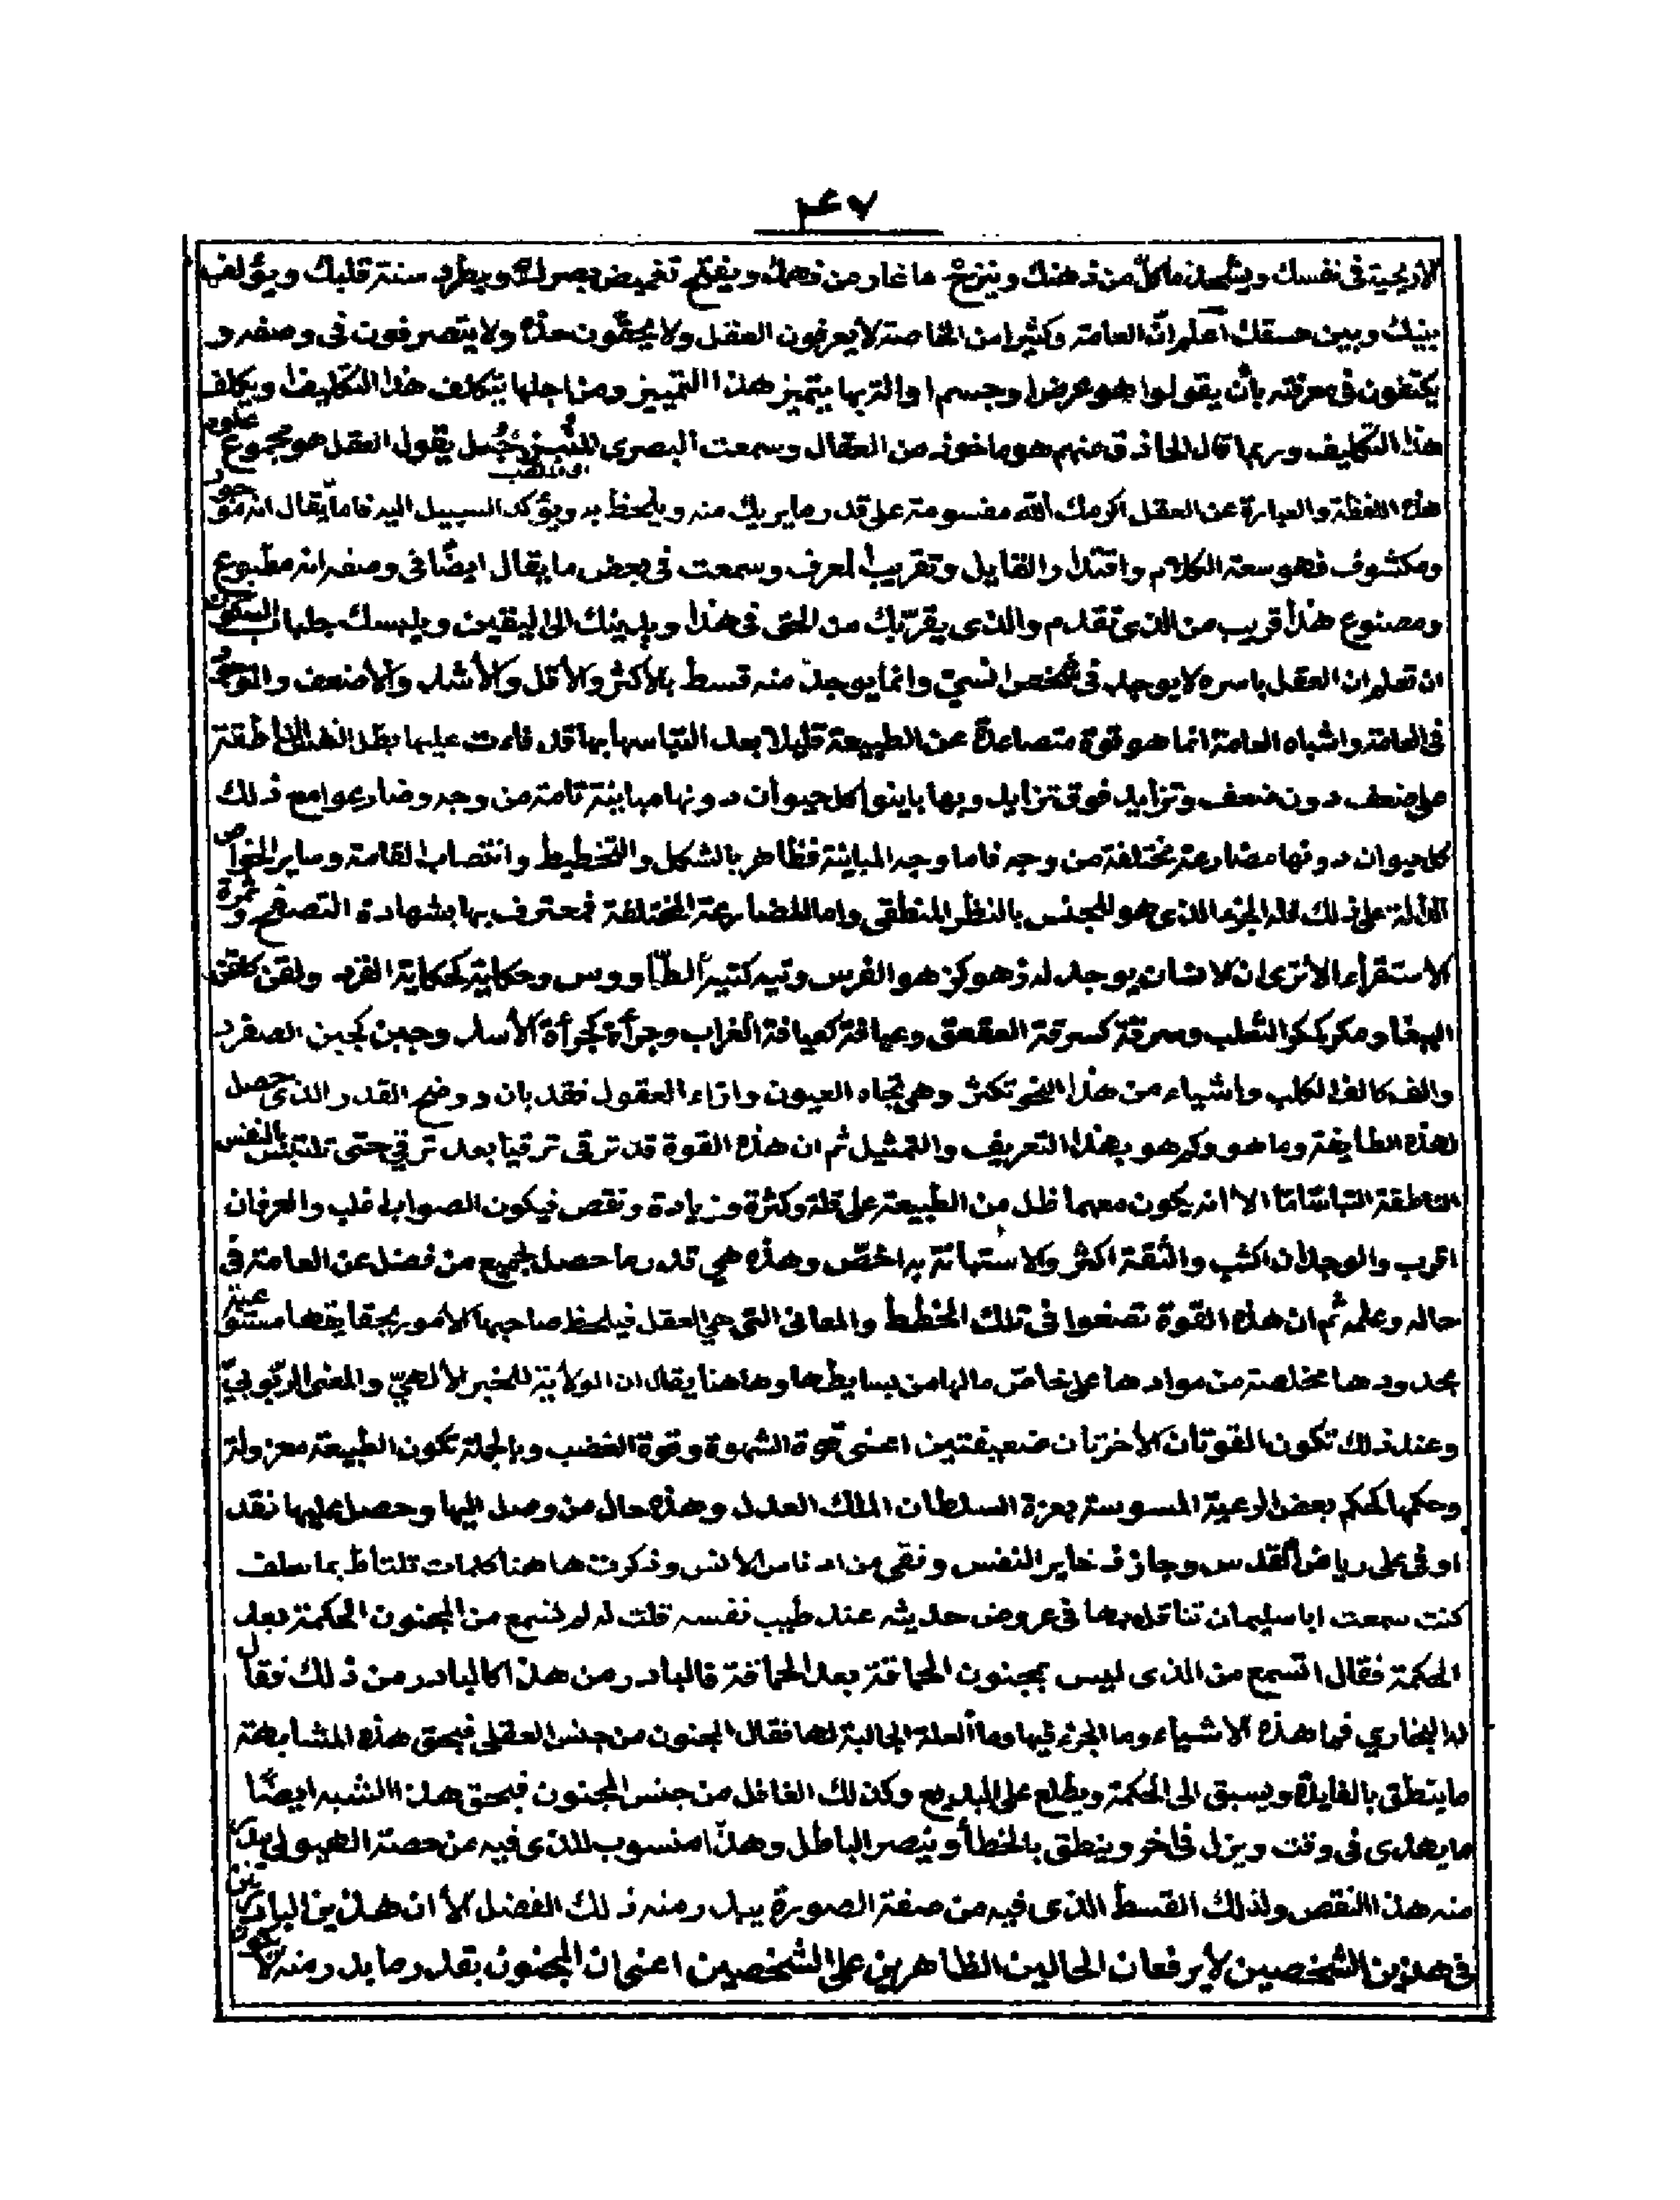 ٤٧
الاريحية فى نفسك ويشحذ ما كلّ من ذهنك وينزح ما غار من فهمك ويفتح تغميض بصرك ويطرد سنة قلبك ويؤلف
بينك وبين حسقك اعلم انّ العامة وكثيرا من الخاصة لا يعرفون العقل ولا يحقّون حدّه ولا يتصرفون فى وصفه و
يكتفون فى معرفته بأن يقولوا هو عرض او جسم او الة بها يتميز هذا التمييز ومن اجلها يتكلف هذا التكليف ويكلف
هذا التكليف وربما قال الحاذق منهم هو ماخوذ من العقال وسمعت البصرى يقول العقل هو مجموع علوم
هذه اللفظة والعبارة عن العقل اكرمك الله مقسومة على قدر ما يريك منه ويلحظ به ويؤكد السبيل اليه فاما يقال انه موجود
ومكشوف فهو سعة الكلام واقتدار القايل وتقريب المعرف وسمعت فى بعض ما يقال ايضًا فى وصفه انه مطبوع
ومصنوع هذا قريب من الذى تقدم والذى يقرّبك من الحق فى هذا ويدينك الى اليقين ويلبسك جلباب السكون
ان تعلم ان العقل باسره لا يوجد فى شخص انسىّ وانما يوجد منه قسط بالأكثر والأقل والأشد والأضعف والموجود
فى العامة واشباه العامة انما هو قوة متصاعدة عن الطبيعة قليلا بعد التباسها بها قد فاءت عليها بظل النفس الناطقة
على ضعف دون ضعف وتزايد فوق تزايد وبها باينوا كل حيوان دونها مباينة تامة من وجه وضارعوا مع ذلك
كل حيوان دونها مضارعة مختلفة من وجه فاما وجه المباينة فظاهر بالشكل والتخطيط وانتصاب القامة وساير الخواص
الدالة على ذلك الجزء الذى هو للجنس بالنظر المنطقى واما المضارعة المختلفة فمعترف بها بشهادة التصفح وثمرة
الاستقراء الا ترى ان الانسان يوجد له زهو كزهو الفرس وتيه كتيه الطاووس وحكاية كحكاية القرد ولقن كلقن
الببغا ومكر كمكر الثعلب وسرقة كسرقة العقعق وعيافة كعيافة الغراب وجرأة كجرأة الأسد وجبن كجبن الصفرد
والف كالف الكلب واشياء من هذا النحو تكثر وهى تجاه العيون وازاء العقول فقد بان ووضح القدر الذى حصل
لهذه الطايفة وما هو وكم هو بهذا التعريف والتمثيل ثم ان هذه القوة قد ترقى ترقيا بعد ترقي حتى تلتبس بالنفس
الناطقة التباسا تاما الا انه يكون معهما ظل من الطبيعة على قلة وكثرة وزيادة ونقص فيكون الصواب اغلب والعرفان
اقرب والوجدان اكثب والثقة اكثر والاستهانة به اخصّ وهذه هي قدر ما حصل لجميع من فضل عن العامة فى
حاله وعلمه ثم ان هذه القوة تصغوا فى تلك الخطط والمعانى التى هي العقل فيلحظ صاحبها الأمور بحقايقها مستوعبة
بحدودها مخلصة من موادها على خاصّ مالها من بسايطها وهاهنا يقال ان الولاية للخبر الألهيّ والمعنى الربوبيّ
وعند ذلك تكون القوتان الأخريان ضعيفتين اعنى قوة الشهوة وقوة الغضب وبالجملة تكون الطبيعة معزولة
وحكمها كحكم بعض الرعية المسوسة بعزة السلطان الملك العدل وهذه حال من وصل اليها وحصل عليها فقد
اوفى على رياض القدس وحاز ذخاير النفس ونقى من ادناس الأنس وذكرت هاهنا كلمات تلتاط بما سلف
كنت سمعت ابا سليمان تناقله بها فى عروض حديثه عند طبيب نفسه قلت له لم نسمع من المجنون الحكمة بعد
الحكمة فقال اتسمع من الذى ليس بمجنون الحماقة بعد الحماقة فالبادر من هذا كالبادر من ذلك فقال
له البخاري فما هذه الاشياء وما الجزء فيها وما العلة الجالبة لها فقال المجنون من جنس العقل فبحق هذه المشابهة
ما ينطق بالفايدة ويسبق الى الحكمة ويطلع على البديع وكذلك العاقل من جنس المجنون فبحق هذا الشبه ايضًا
ما يهذى فى وقت ويزل فى اخر وينطق بالخطأ وينصر الباطل وهذا منسوب للذى فيه من حصة الهيولى
منه هذا النقص ولذلك القسط الذى فيه من صفة الصورة يبدر منه ذلك الفضل الا ان هذين البادرين
فى هذين الشخصين لا يرفعان الحالين الظاهرين على الشخصين اعنى ان المجنون بقدر ما بدر منه لا يكون